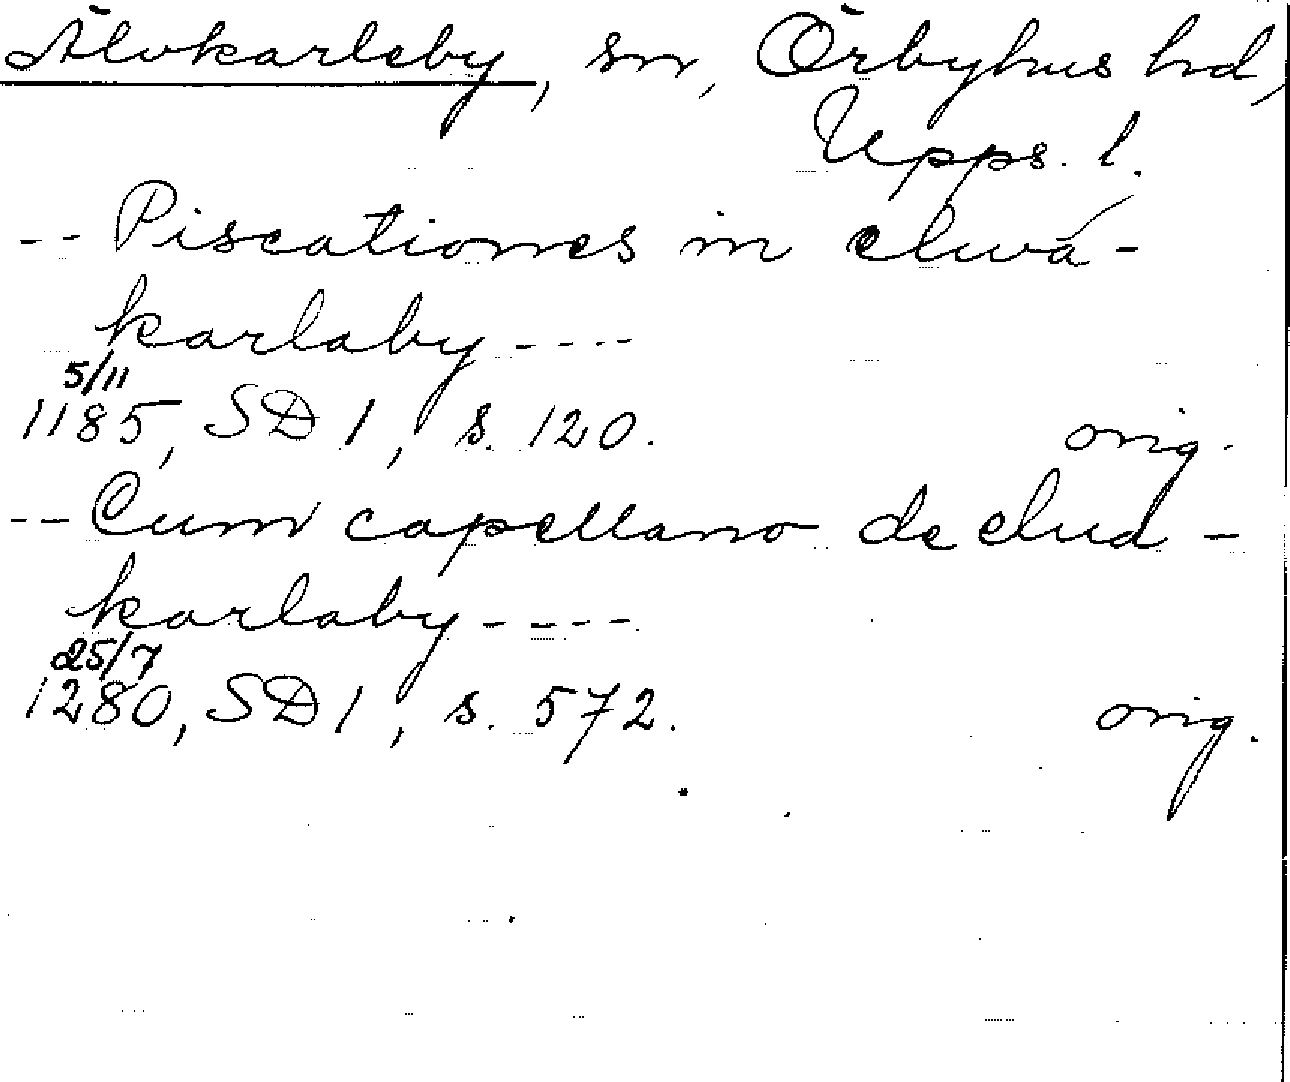 Älvkarleby, sn, Örbyhus hd,
Upps. l.
-- Piscationes in elwá-
karlaby ----
5/11
1185, SD 1, s. 120. orig.
-- Cum capellano de elua-
karlaby ----
25/7
1280, SD 1, s. 572. orig.